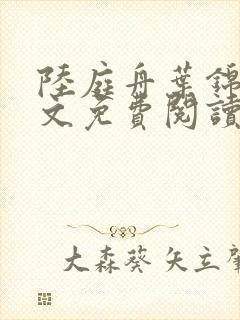 陸庭舟葉錦
文免費閱讀
大森葵 矢立肇